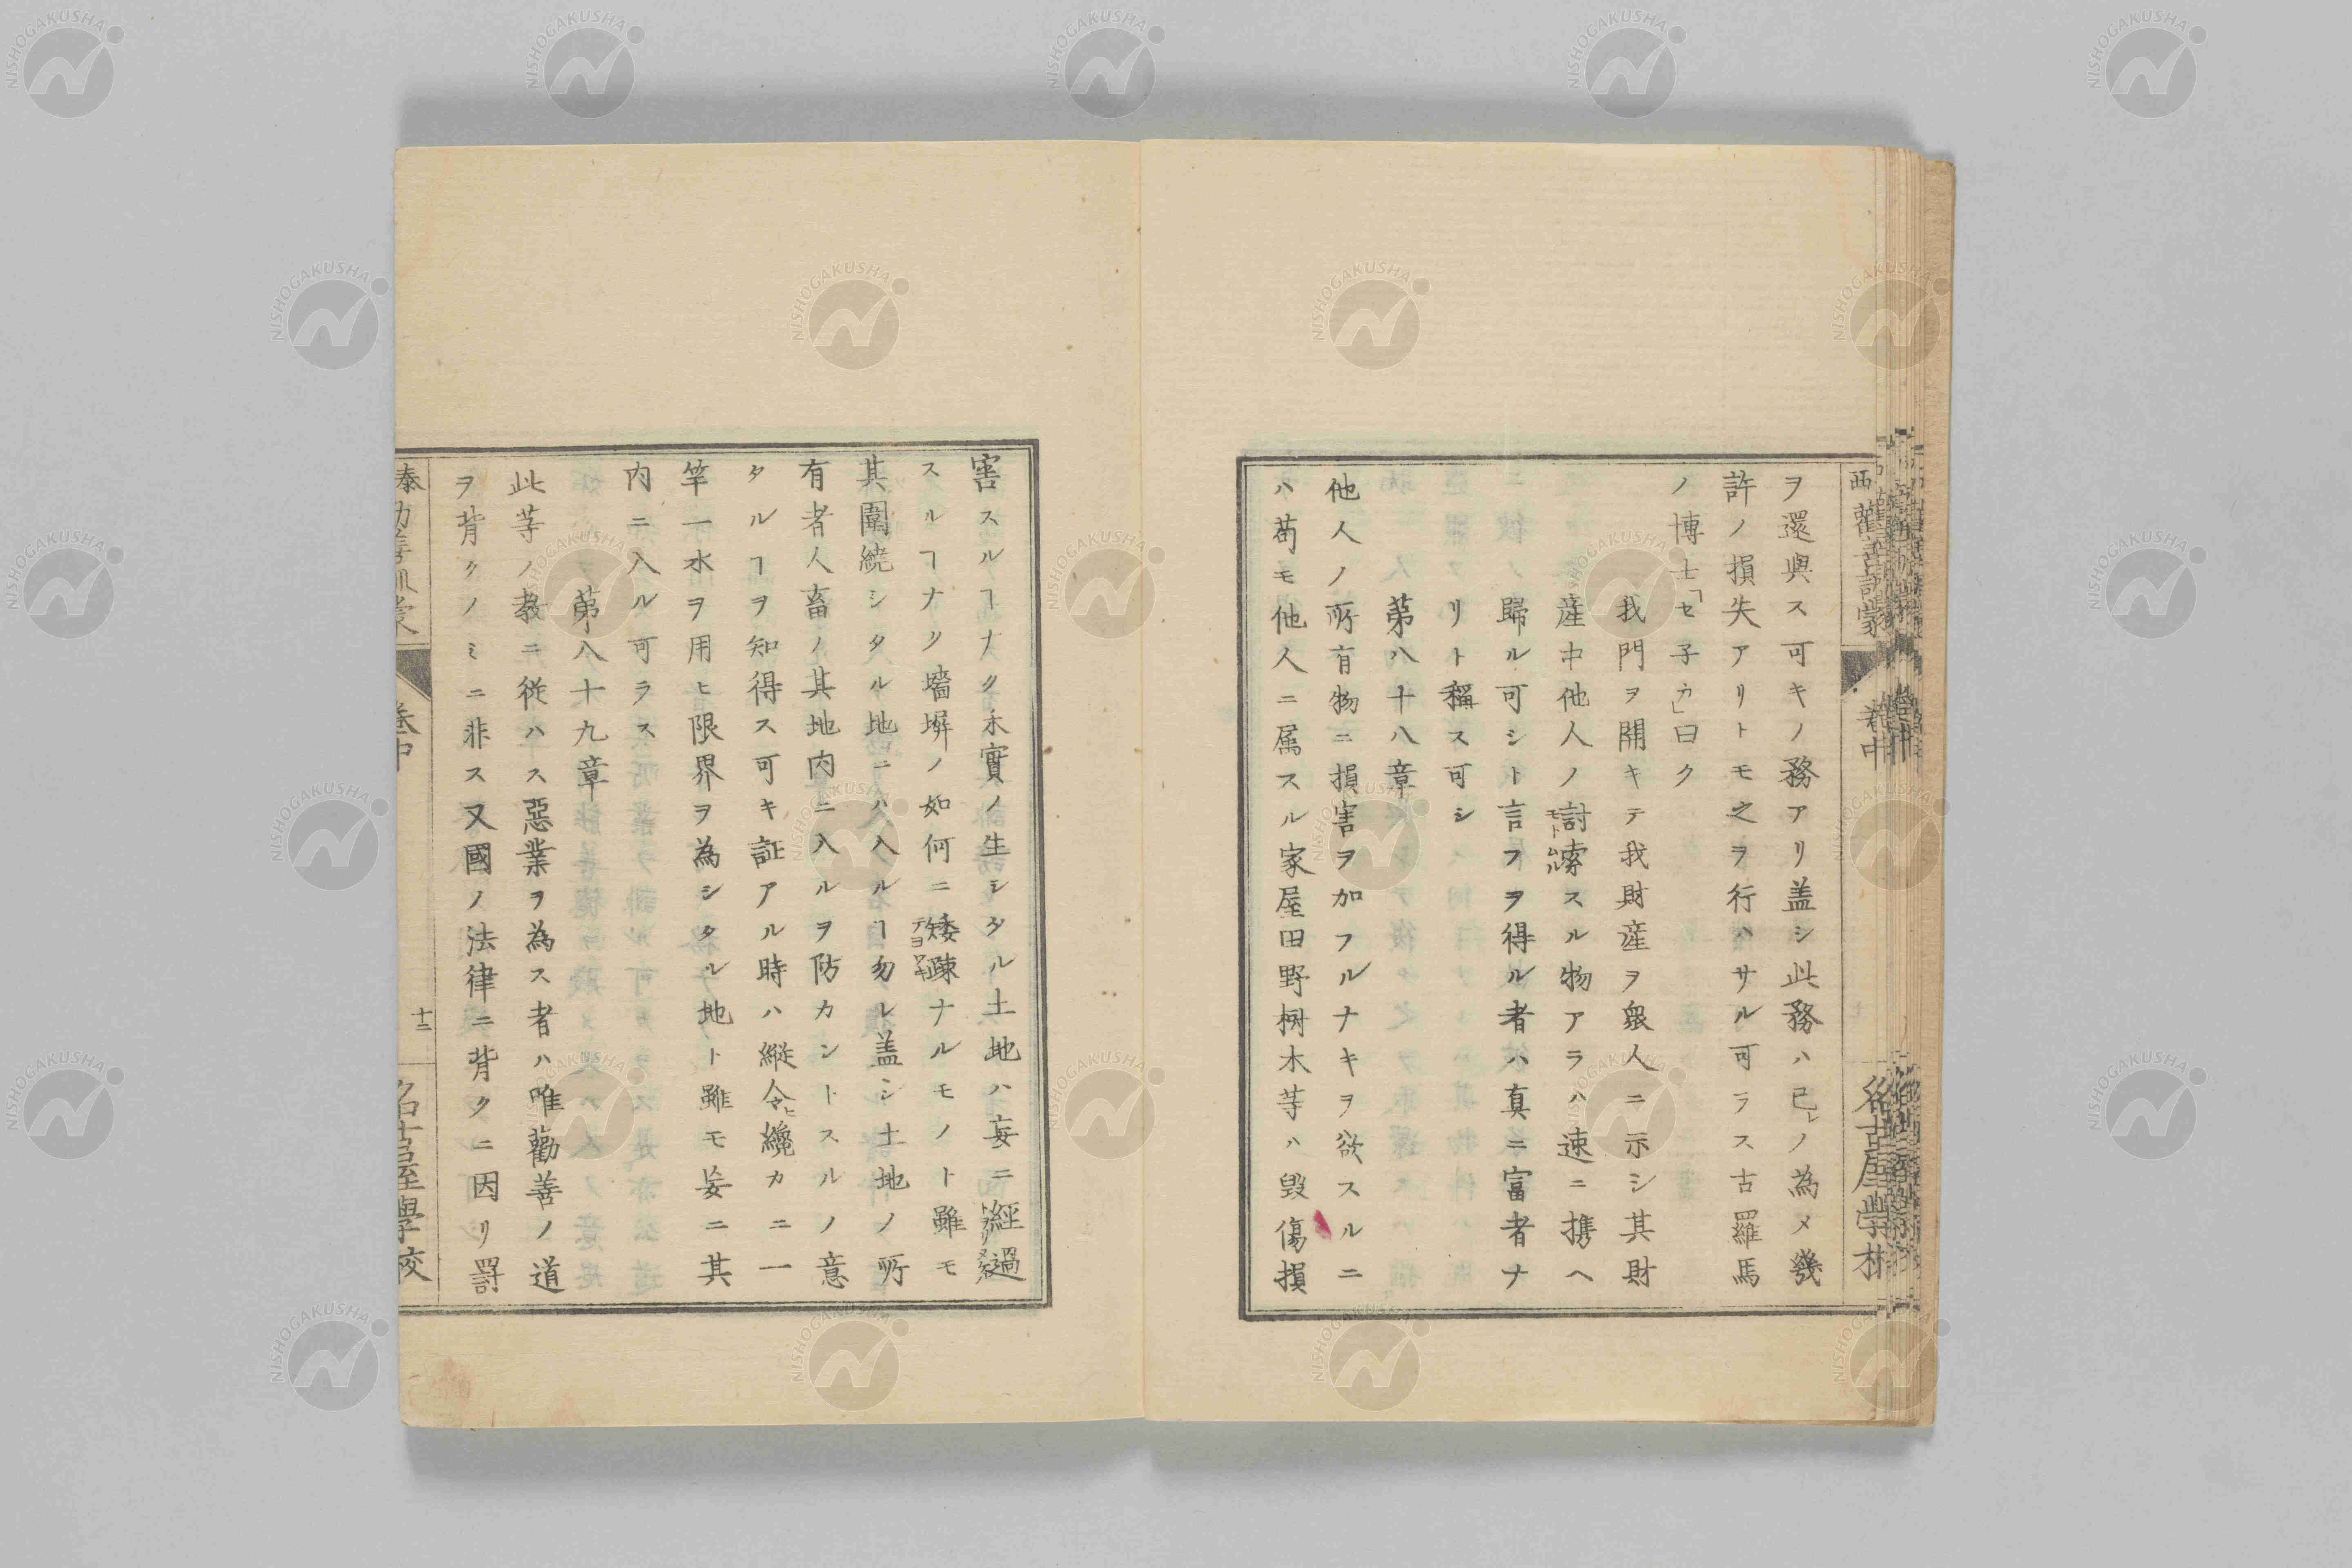 ヲ還與ス可キノ務アリ盖シ此務ハ己レノ為メ幾
許ノ損失アリトモ之ヲ行ハサル可ラス古羅馬
ノ博士「セ子カ」曰ク
我門ヲ開キテ我財産ヲ衆人ニ示シ其財
産中他人ノ討索スル物アラハ速ニ携ヘ
モトムル
歸ル可シト言フヲ得ル者ハ真ニ富者ナ
リト稱ス可シ
第八十八章
他人ノ所有物ニ損害ヲ加フルナキヲ欲スルニ
ハ苟モ他人ニ属スル家屋田野樹木等ハ毀傷損
害スルヿナク禾實ノ生シタル土地ハ妄ニ經過
スルヿナク墻塀ノ如何ニ矮疎ナルモノト雖モ
其圍繞シタル地ニハ入ルヿ勿レ盖シ土地ノ所
有者人畜ノ其地内ニ入ルヲ防カントスルノ意
タルヿヲ知得ス可キ証アル時ハ縦令ヒ纔カニ一
竿一水ヲ用ヒ限界ヲ為シタル地ト雖モ妄ニ其
内ニ入ル可ラス
第八十九章
此等ノ教ニ従ハス惡業ヲ為ス者ハ唯勸善ノ道
ヲ背クノミニ非ス又國ノ法律ニ背クニ因リ罰
巻中
十二
名古屋學校
NISHOGAKUSHA